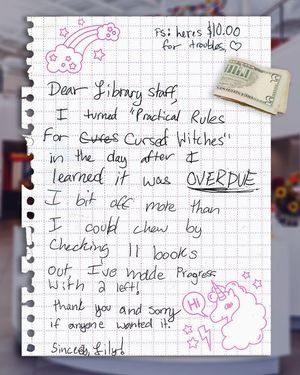 PS: heres $10.00
for troubles, ♡
Dear Library staff,
I turned "Practical Rules
For ~~Cures~~ Cursed Witches"
in the day after I
learned it was OVERDUE
I bit off more than
I could chew by
checking 11 books
out, I've made Progress
With 2 left!
thank you and sorry
if anyone wanted it.
Sincerely, Lily!
HI